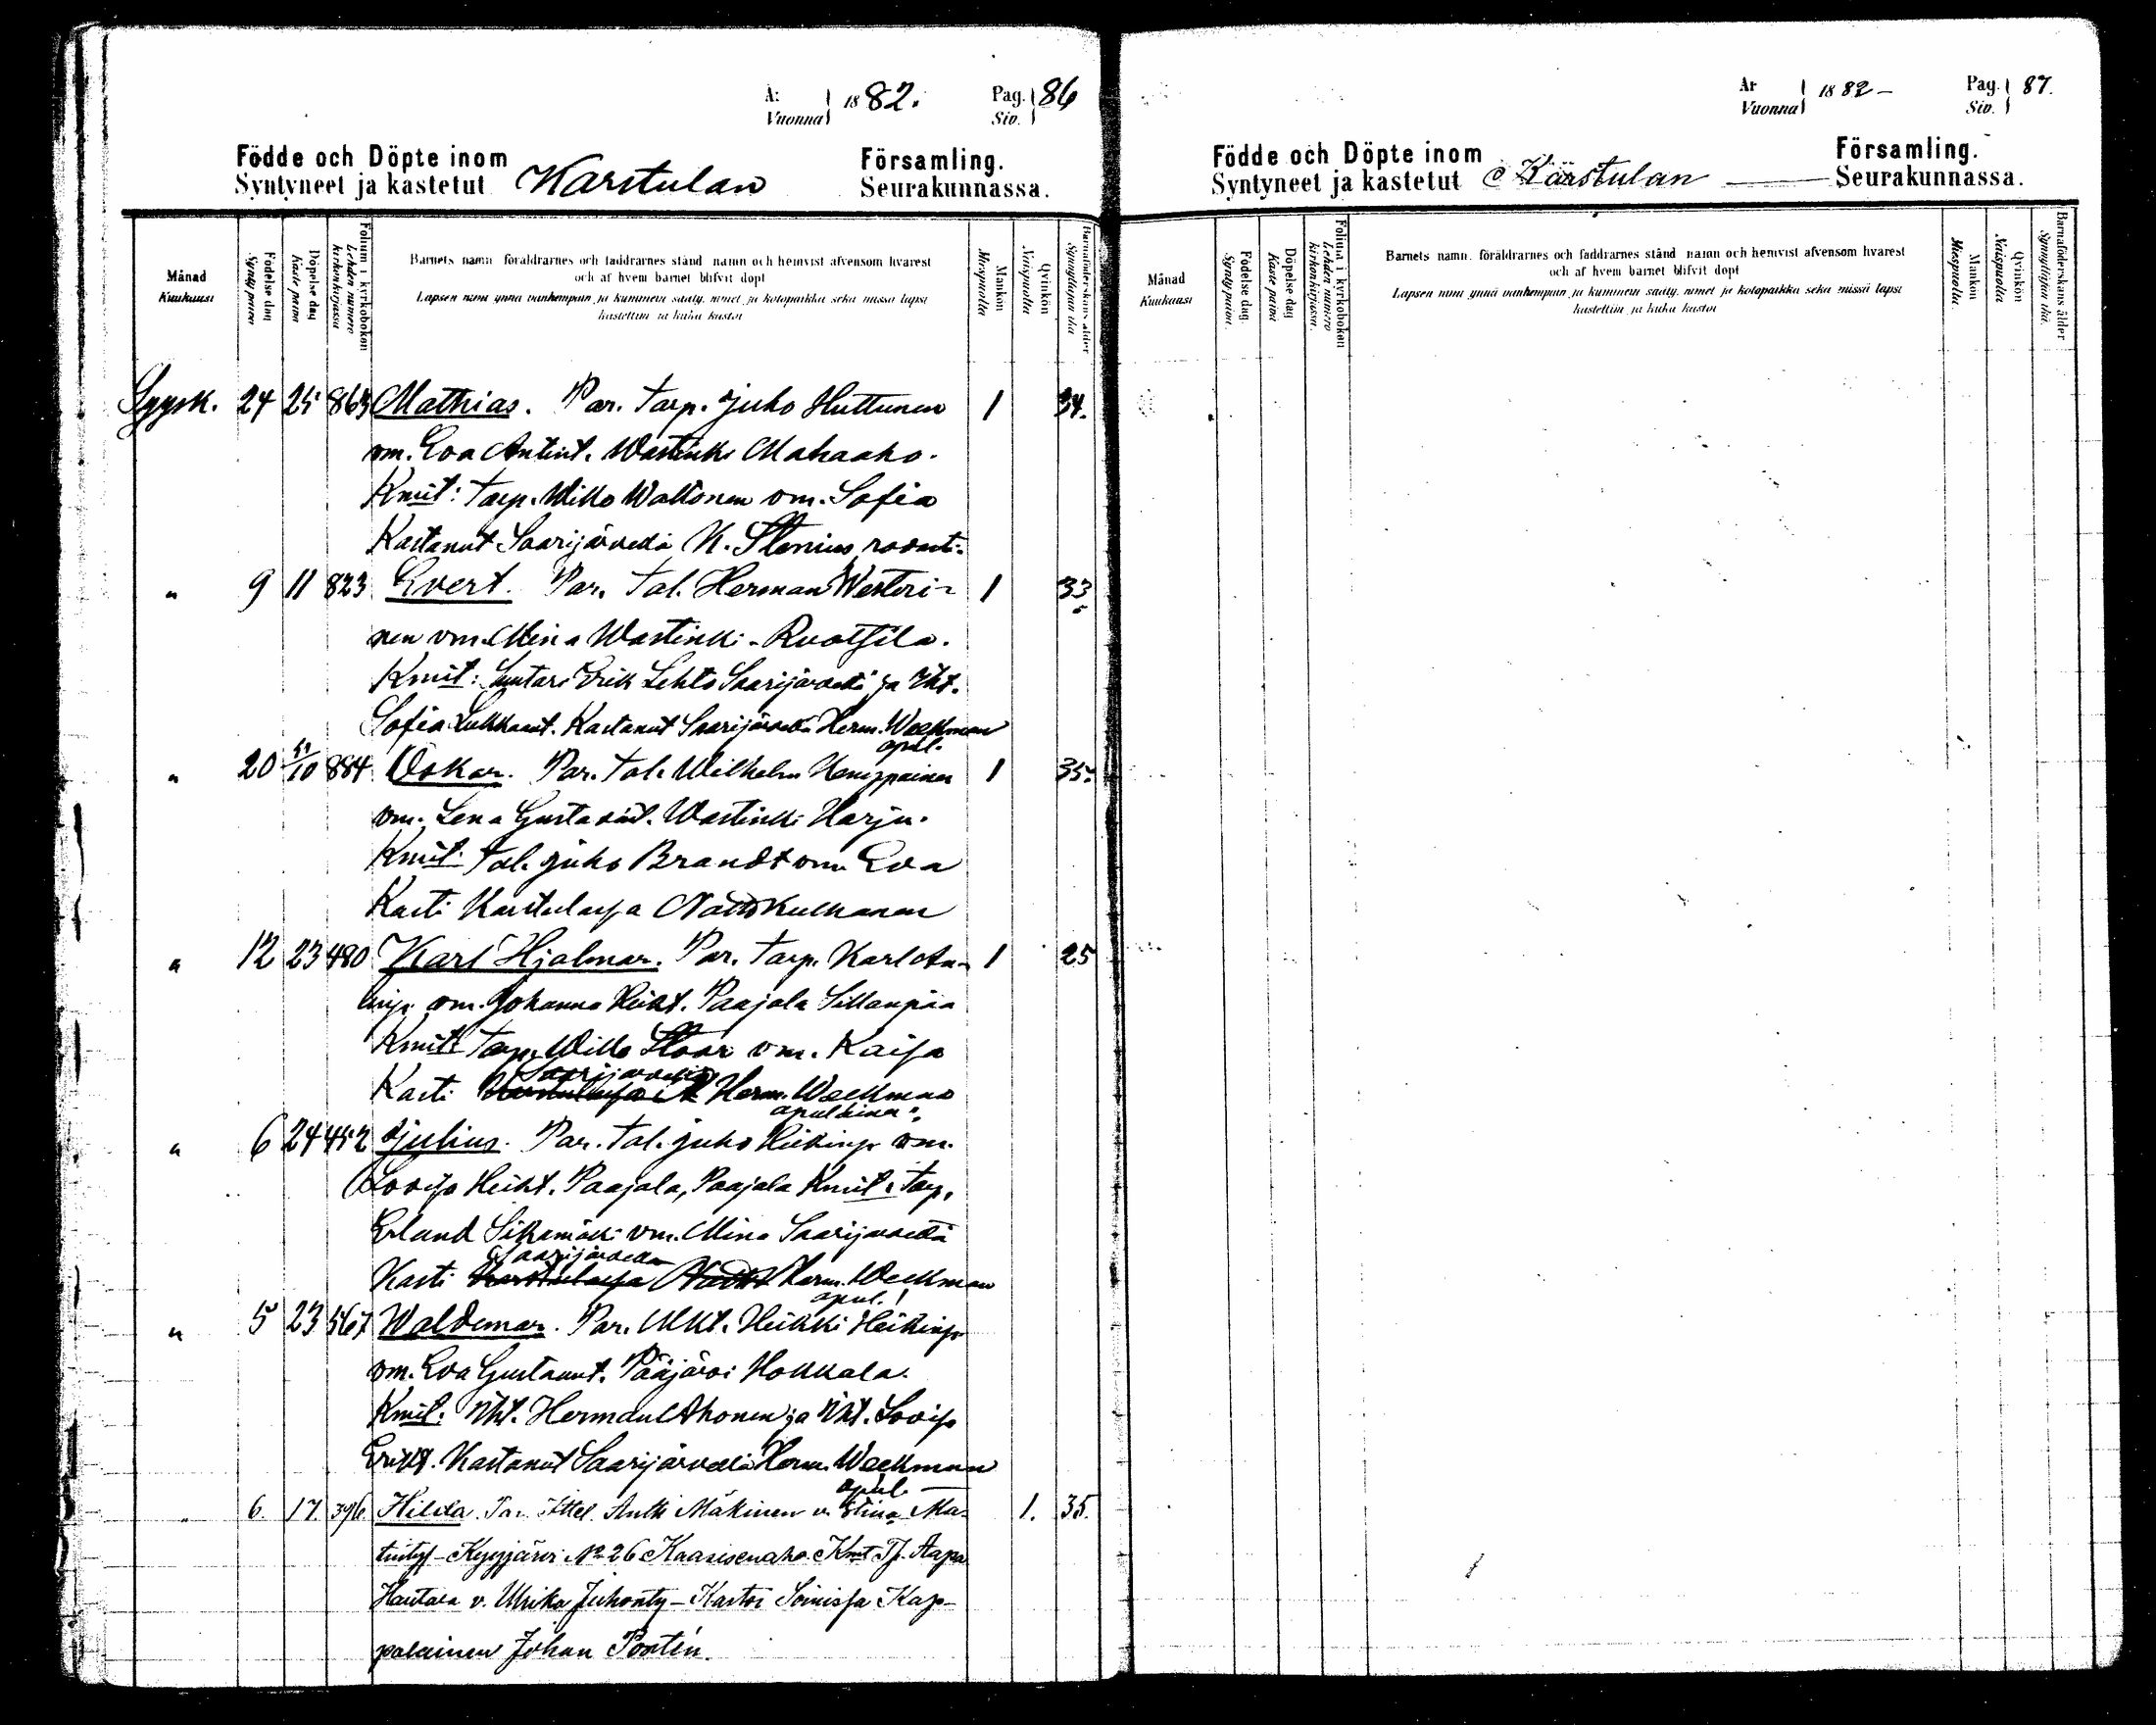 År Vuonna 1882. Pag. Siv. 86
Födde och Döpte inom Församling.
Syntyneet ja kastetut Karstulan Seurakunnassa.
Månad Kuukausi
Födelse dag Synty päivä
Döpelse dag Kaste päivä
Folium i kyrkoboken Lehden numero kirkonkirjassa
Barnets namn föräldrarnes och faddrarnes stånd namn och hemvist äfvensom hvarest
och af hvem barnet blifvit döpt
Lapsen nimi ynnä vanhempain ja kummein sääty, nimet ja kotopaikka sekä missä lapsi
kastettiin ja kuka kastoi
Mankön Miespuolia
Qvinkön Naispuolia
Barnaföderskans ålder Synnyttäjän ikä
Syysk. 24 25 863 Mathias. Par. Torp. Juho Huttunen 1 34.
vm. Eva Antint. Wastinki Mahaaho.
Kmit: Torp. Wilko Waltonen vm. Sofia
Kastanut Saarijärvellä K. Stenius rovasti
" 9 11 823 Evert. Par. Tal. Herman Westeri- 1 33
nen vm. Mina Wastinki-Ruotsila.
Kmit: Suutari Erik Lehto Saarijärveltä ja Iht.
Sofia Kastanut Saarijärvellä Herm. Weckman
apul.
" 20 10 884 Oskar. Par. Tal. Wilhelm Hemppainen 1 35.
vm. Lena Gustavint. Wastinki Harju.
Kmit: Tal. Juho Brandt vm Eva
Kasti Karstulassa Kulhanen
" 12 23 480 Karl Hjalmar. Par. Torp. Karl 1 25
vm. Johanna Heikt. Paajala Sillanpää
Kmit: Torp. Wille vm. Kaisa
Saarijärvellä
Kasti Karstulassa Herm. Weckman
apulainen
" 6 24 452 Julius. Par. Tal. Juho Heikinp. vm.
Lovisa Heikt. Paajala, Paajala Kmit: Torp.
Erland Sikamäki vm. Mina Saarijärveltä
Saarijärvellä
Kasti Karstulassa Herm. Weckman
apul.
" 5 23 567 Waldemar. Par. Mkt. Heikki Heikinp
vm. Eva Gustavint. Pääjärvi Hokkala.
Kmit. Iht. Herman Ahonen ja Iht. Lovisa
Erikt. Kastanut Saarijärvellä Herm. Weckman
apul.
" 6. 17. 396. Hilda. Par. Ittel. Antti Mäkinen v. Stina Ma- 1. 35.
tintyt - Kyyjärvi No 26 Kaasisenaho. Kmt Tp. Aapo
Hautala v. Ulrika Juhonty - Kastoi Soinissa Kap-
palainen Johan Pontén.
År Vuonna 1882 - Pag. Siv. 87.
Födde och Döpte inom Församling.
Syntyneet ja kastetut Karstulan Seurakunnassa.
Månad Kuukausi
Födelse dag Synty päivä
Döpelse dag Kaste päivä
Folium i kyrkoboken Lehden numero kirkonkirjassa
Barnets namn. föräldrarnes och faddrarnes stånd namn och hemvist äfvensom hvarest
och af hvem barnet blifvit döpt
Lapsen nimi ynnä vanhempain ja kummein sääty, nimet ja kotopaikka sekä missä lapsi
kastettiin ja kuka kastoi
Mankön Miespuolia
Qvinkön Naispuolia
Barnaföderskans ålder Synnyttäjän ikä